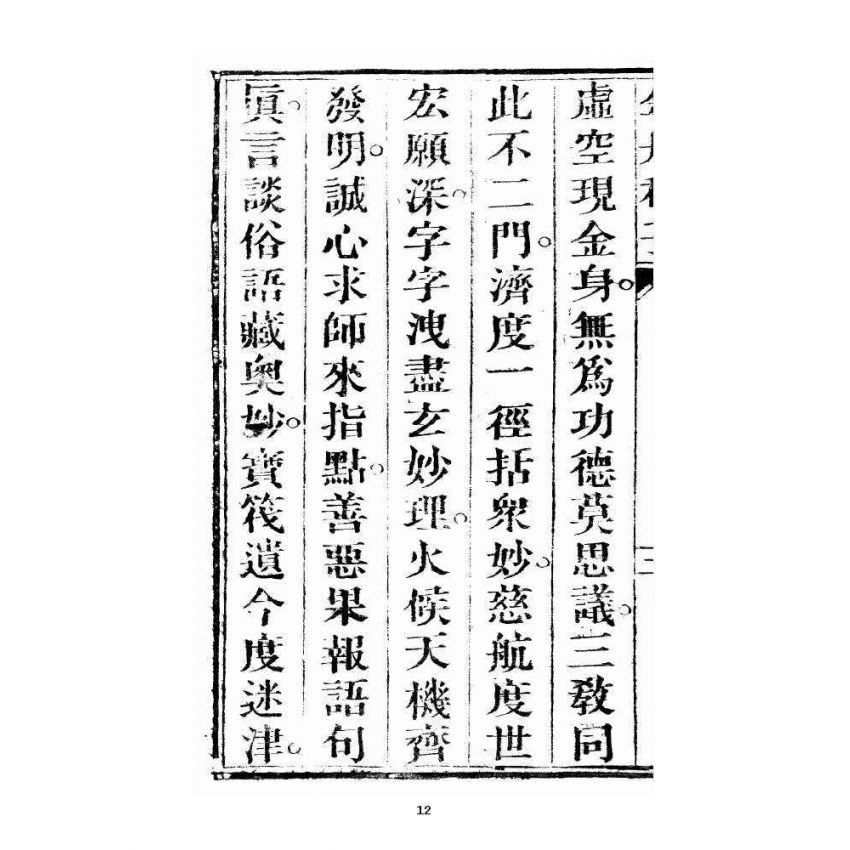 虛空現金身。無爲功德莫思議。三敎同
此不二門。濟度一徑括衆妙。慈航度世
宏願深。字字洩盡玄妙理。火候天機齊
發明。誠心求師來指點。善惡果報語句
眞。言談俗語藏奥妙。寶筏遺今度迷津。
12